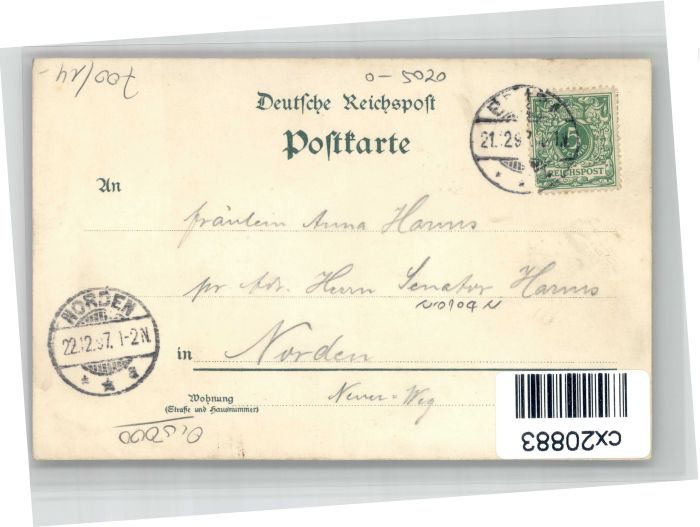 700/14-
0-5020
Deutsche Reichspost
Postkarte
21.12.9
5
REICHSPOST
An
Fräulein Anna Harms
pr Adr. Herrn Senator Harms
NORDEN
22.12.97. 1-2N.
in Norden
Wohnung
(Straße und Hausnummer)
Neuer-Weg
cx20883